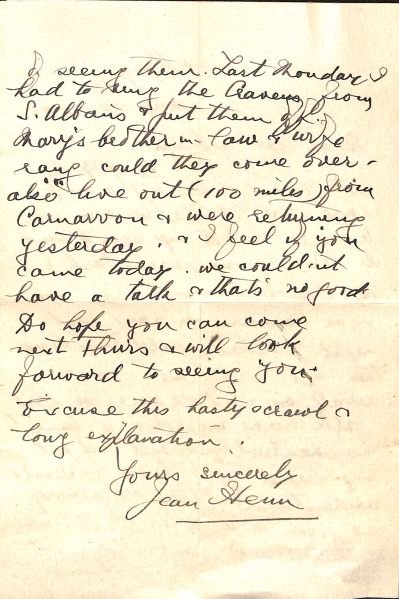 of seeing them. Last Monday I
had to ring the Cravens from
S. Albans & put them off.
Mary's brother in law & wife
rang could they come over -
also live out (100 miles) from
Carnarvon & were returning
yesterday. & I feel if you
came today. we could'nt
have a talk & that's no good
Do hope you can come
next Thurs & will look
forward to seeing you.
Excuse this hasty scrawl &
long explanation.
Yours sincerely
Jean Henn